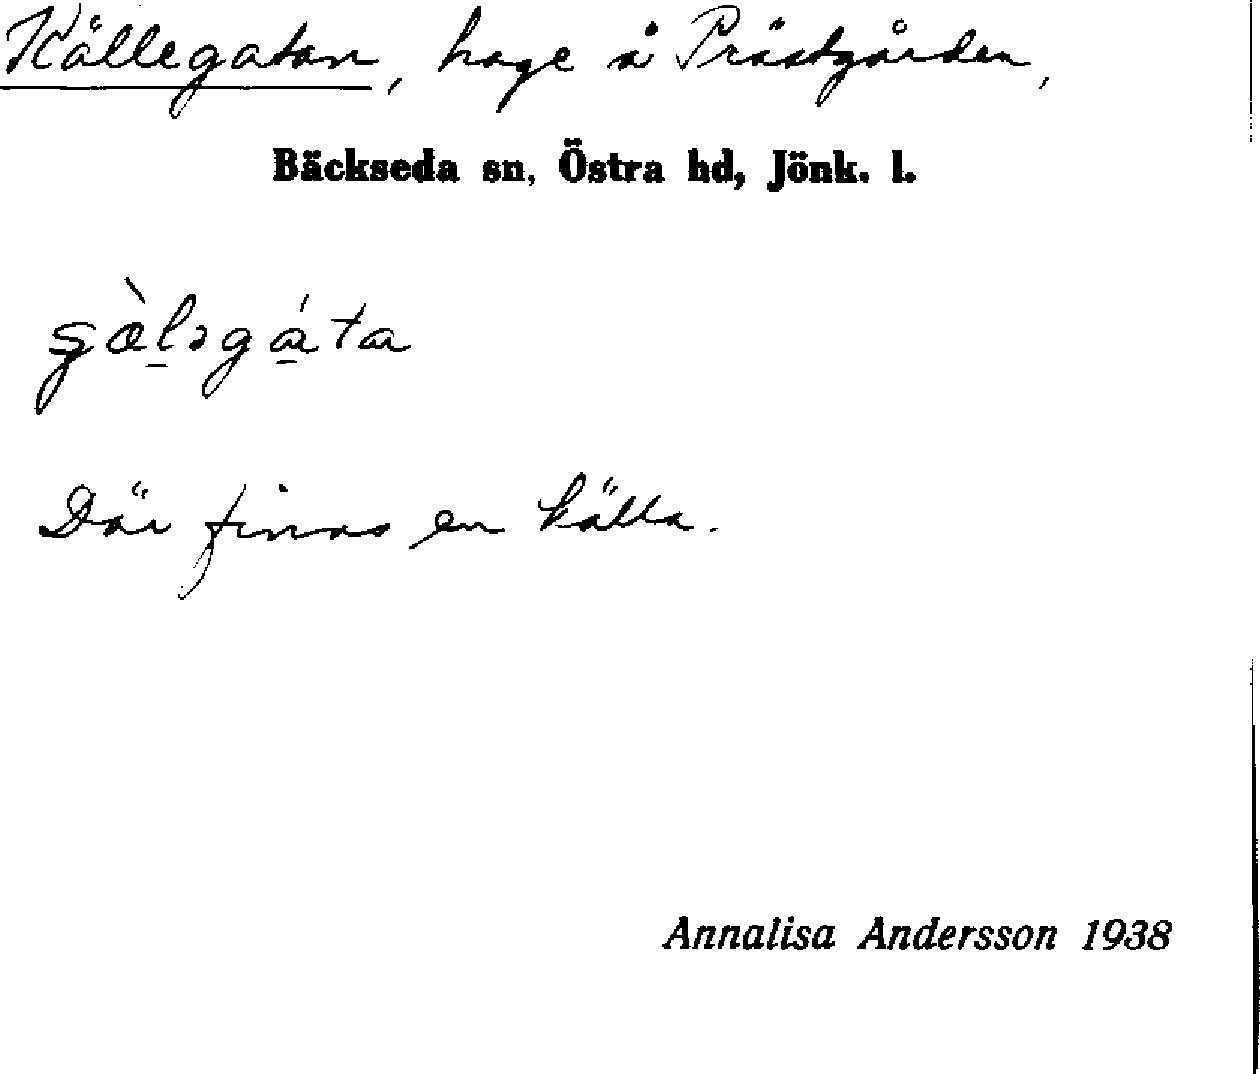 Källegatan, hage å Prästgården,
Bäckseda sn, Östra hd, Jönk. l.
Där finns en källa.
Annalisa Andersson 1938